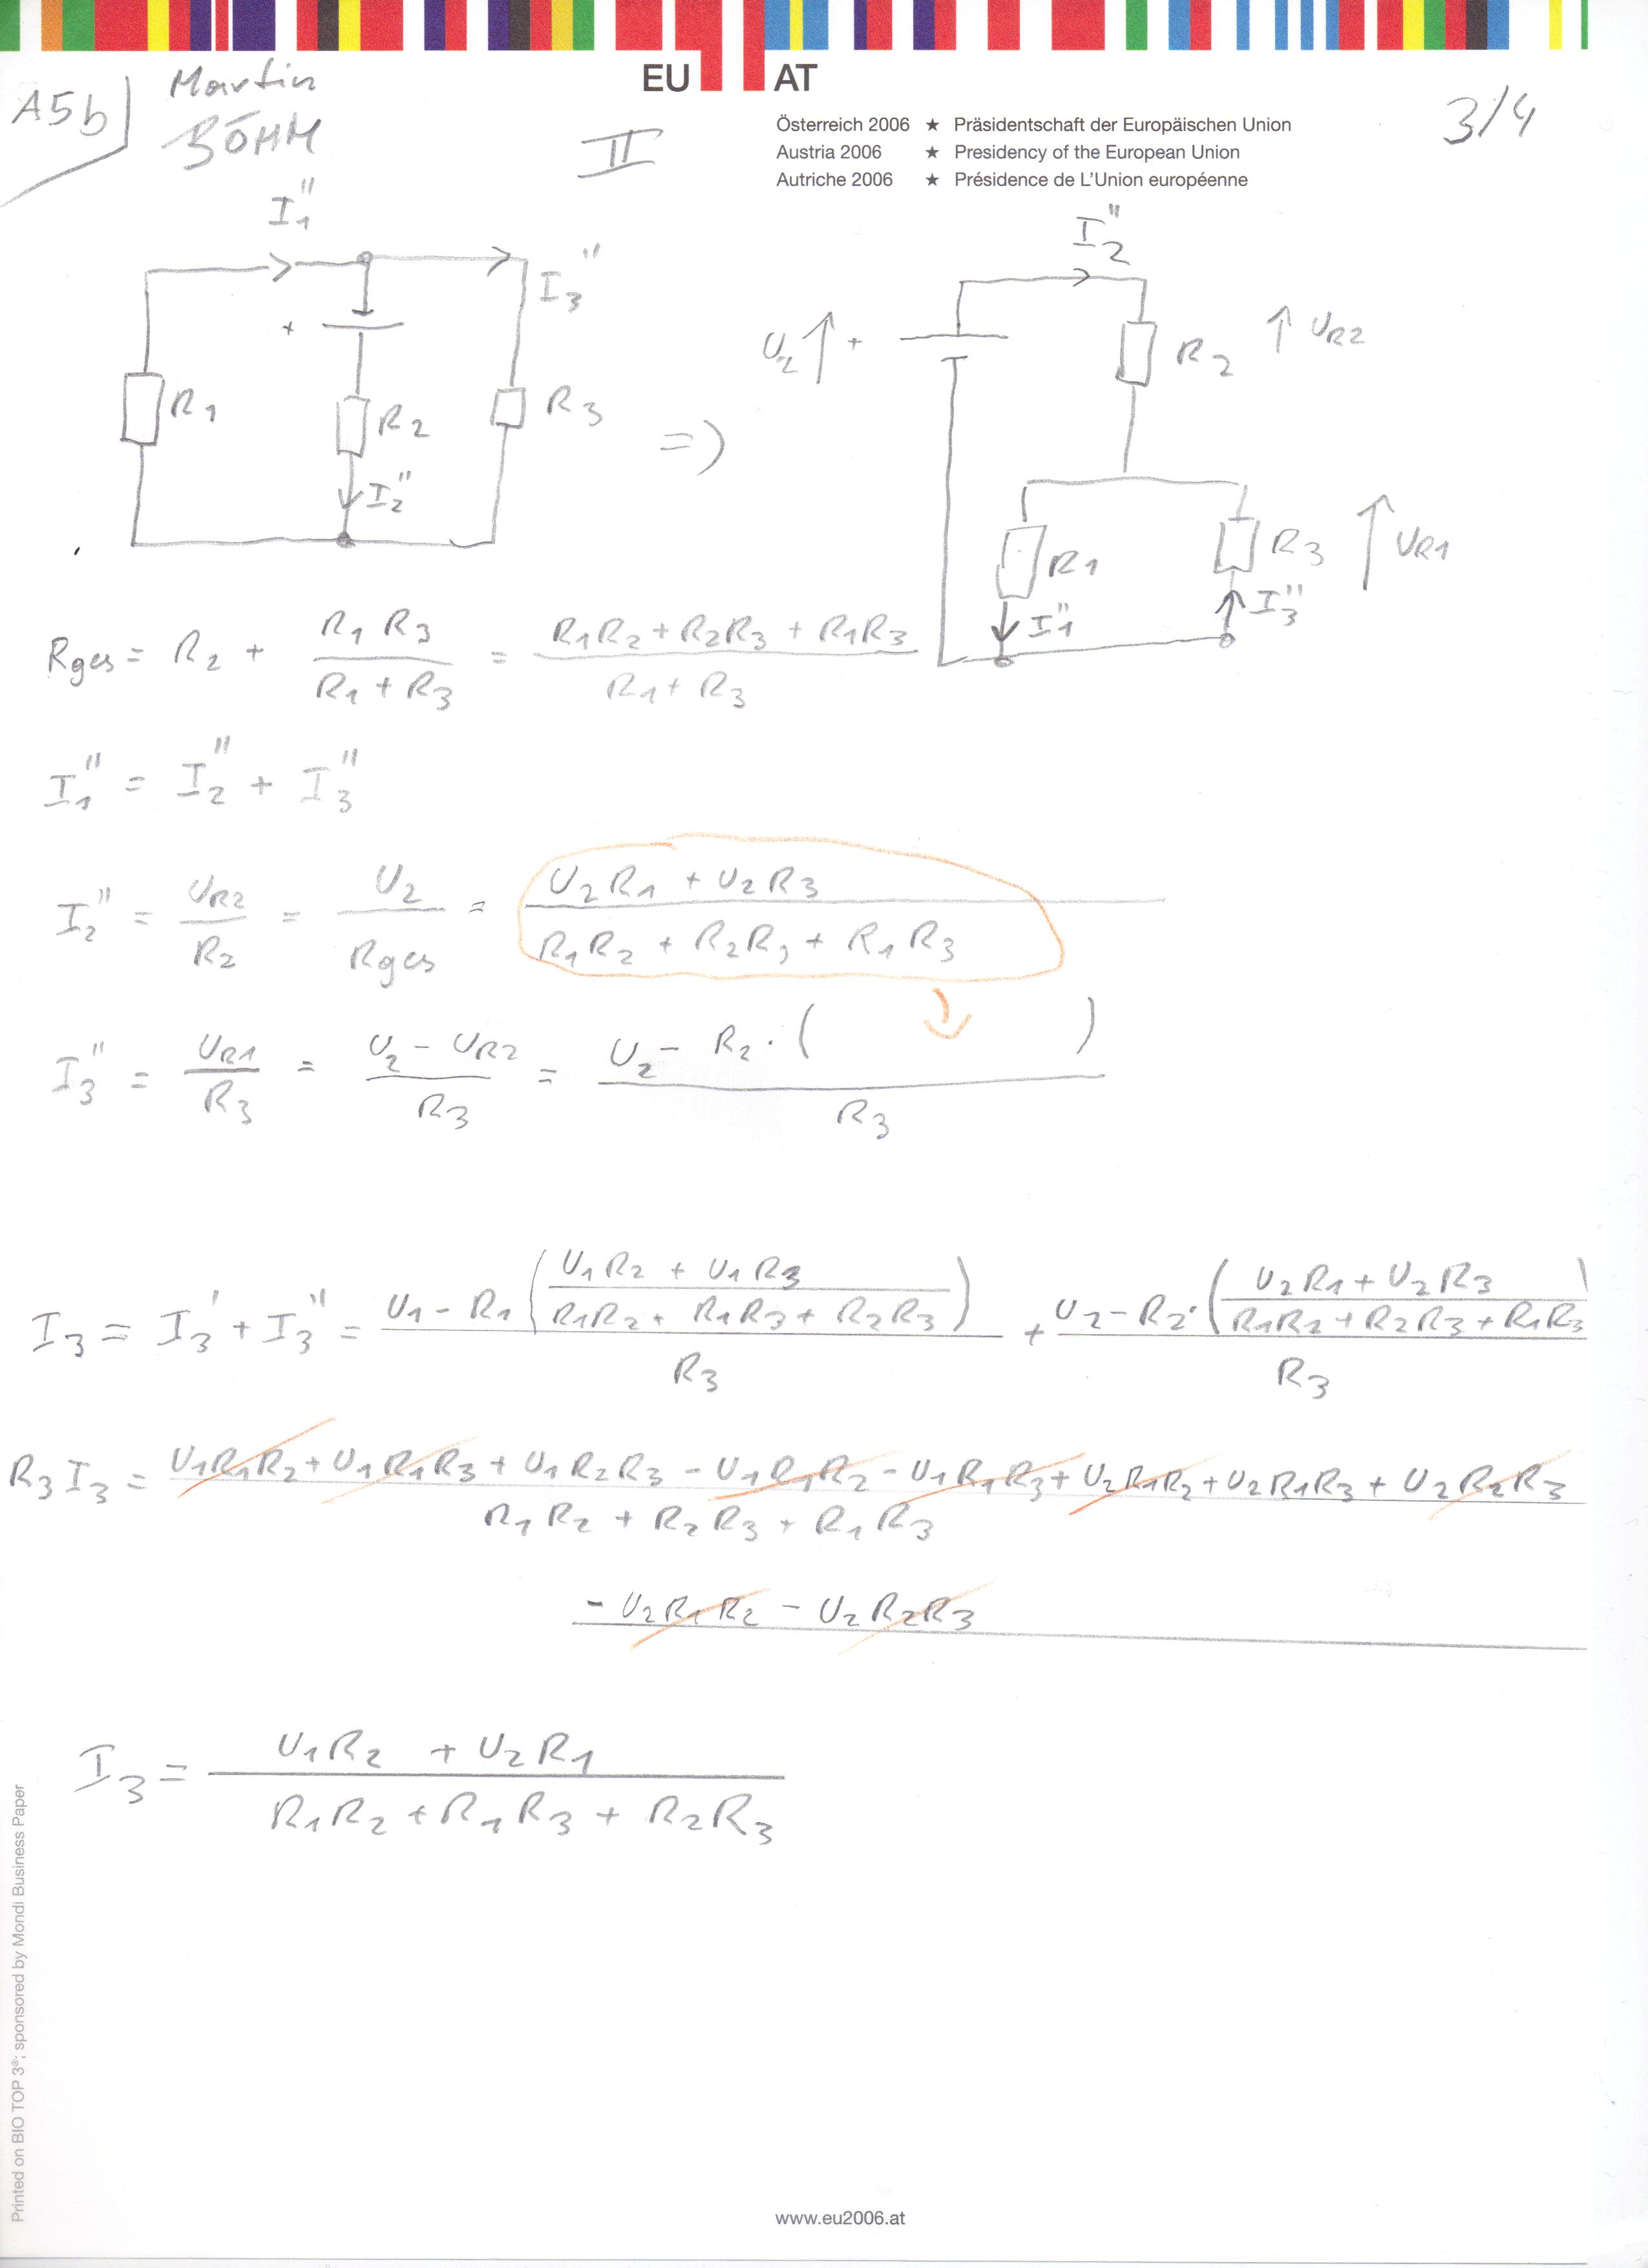 A5b) Martin BÖHM
EU AT
Österreich 2006 ★ Präsidentschaft der Europäischen Union
Austria 2006 ★ Presidency of the European Union
Autriche 2006 ★ Présidence de L'Union européenne
II
3/4
I₁''
I₃''
+
R₁
R₂
R₃
I₂''
=>
I₂''
U₂ ↑ +
R₂ ↑ UR2
R₁
I₁''
R₃ ↑ UR1
I₃''
Rges = R₂ + (R₁ R₃)/(R₁ + R₃) = (R₁R₂ + R₂R₃ + R₁R₃)/(R₁ + R₃)
I₁'' = I₂'' + I₃''
I₂'' = UR2/R₂ = U₂/Rges = (U₂R₁ + U₂R₃)/(R₁R₂ + R₂R₃ + R₁R₃)
I₃'' = UR1/R₃ = (U₂ - UR2)/R₃ = (U₂ - R₂ · ( ))/R₃
I₃ = I₃' + I₃'' = (U₁ - R₁ ((U₁R₂ + U₁R₃)/(R₁R₂ + R₁R₃ + R₂R₃)))/R₃ + (U₂ - R₂ · ((U₂R₁ + U₂R₃)/(R₁R₂ + R₂R₃ + R₁R₃)))/R₃
R₃ I₃ = (U₁R₁R₂ + U₁R₁R₃ + U₁R₂R₃ - U₁R₁R₂ - U₁R₁R₃ + U₂R₁R₂ + U₂R₁R₃ + U₂R₂R₃)/(R₁R₂ + R₂R₃ + R₁R₃)
- U₂R₁R₂ - U₂R₂R₃
I₃ = (U₁R₂ + U₂R₁)/(R₁R₂ + R₁R₃ + R₂R₃)
Printed on BIO TOP 3®; sponsored by Mondi Business Paper
www.eu2006.at